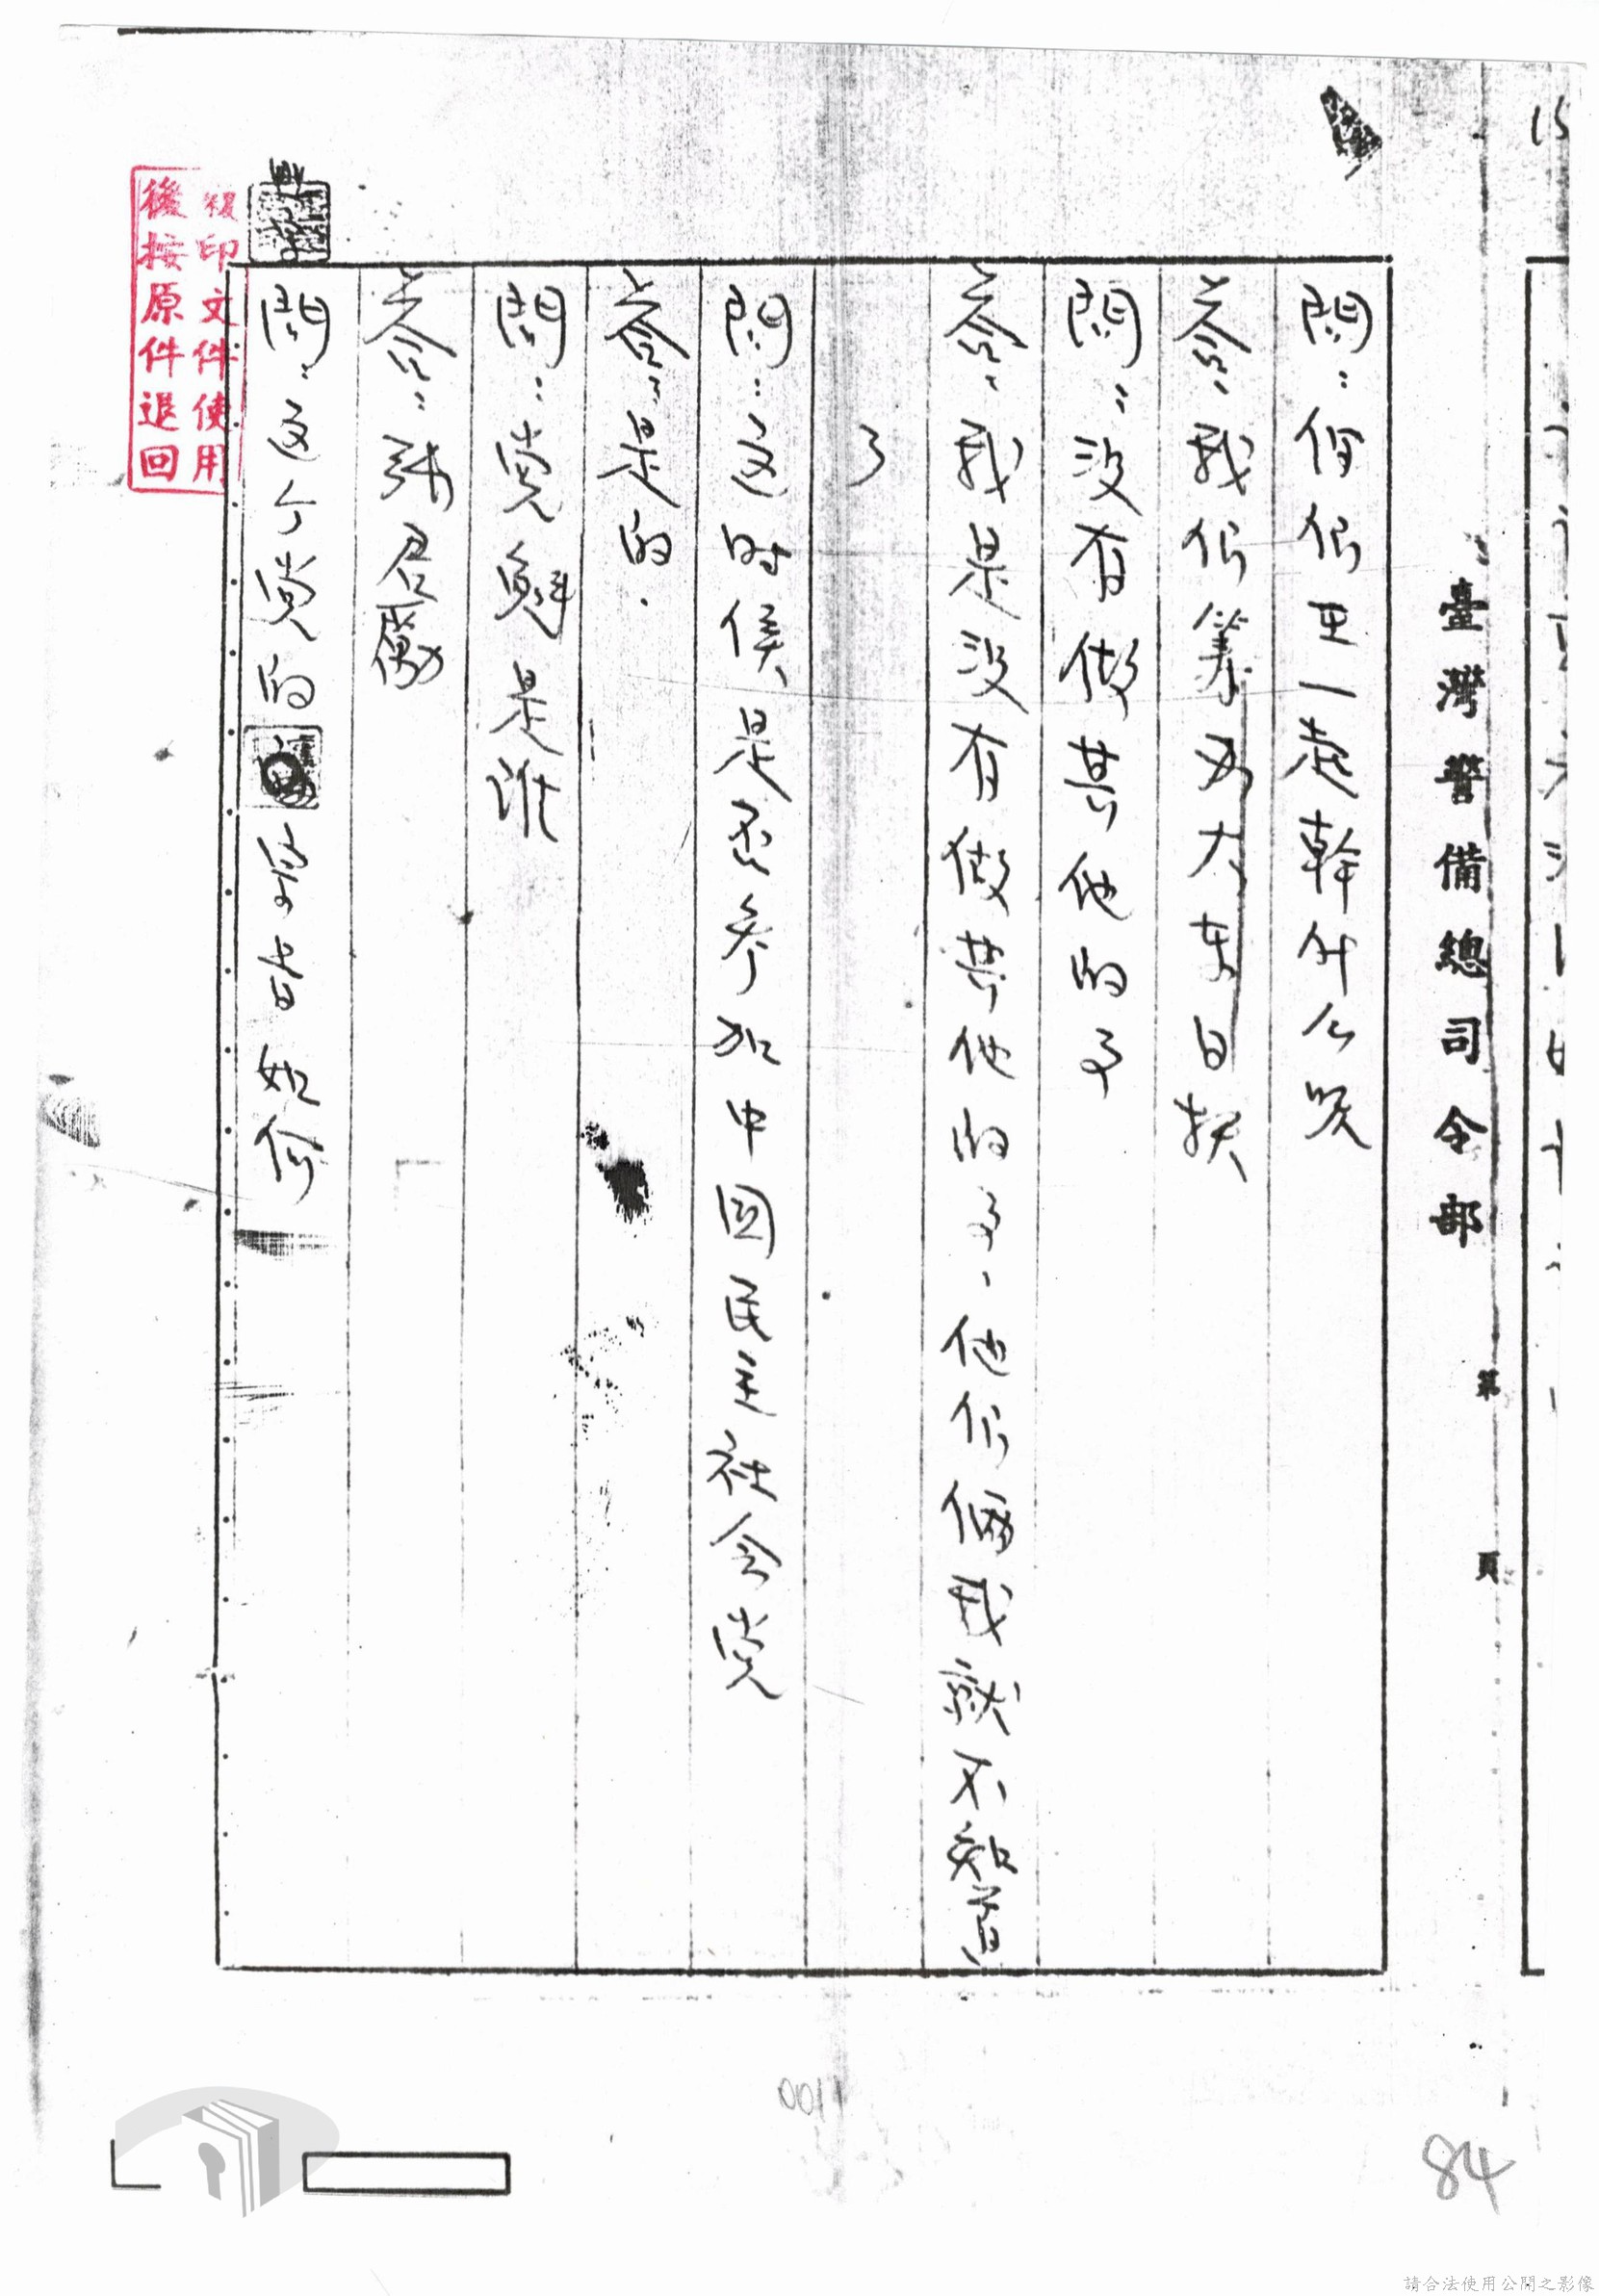 15
臺灣警備總司令部
第 頁
問：你們在一起幹什么呢
答：我們籌办大東日報
問：沒有做其他的事
答：我是沒有做其他的事、他們倆我就不知道
了
問：这時候是否參加中国民主社会党
答：是的．
問：党魁是誰
答：張君勱
問：这个党的宗旨如何
複印文件使用
後按原件退回
0011
84
請合法使用公開之影像